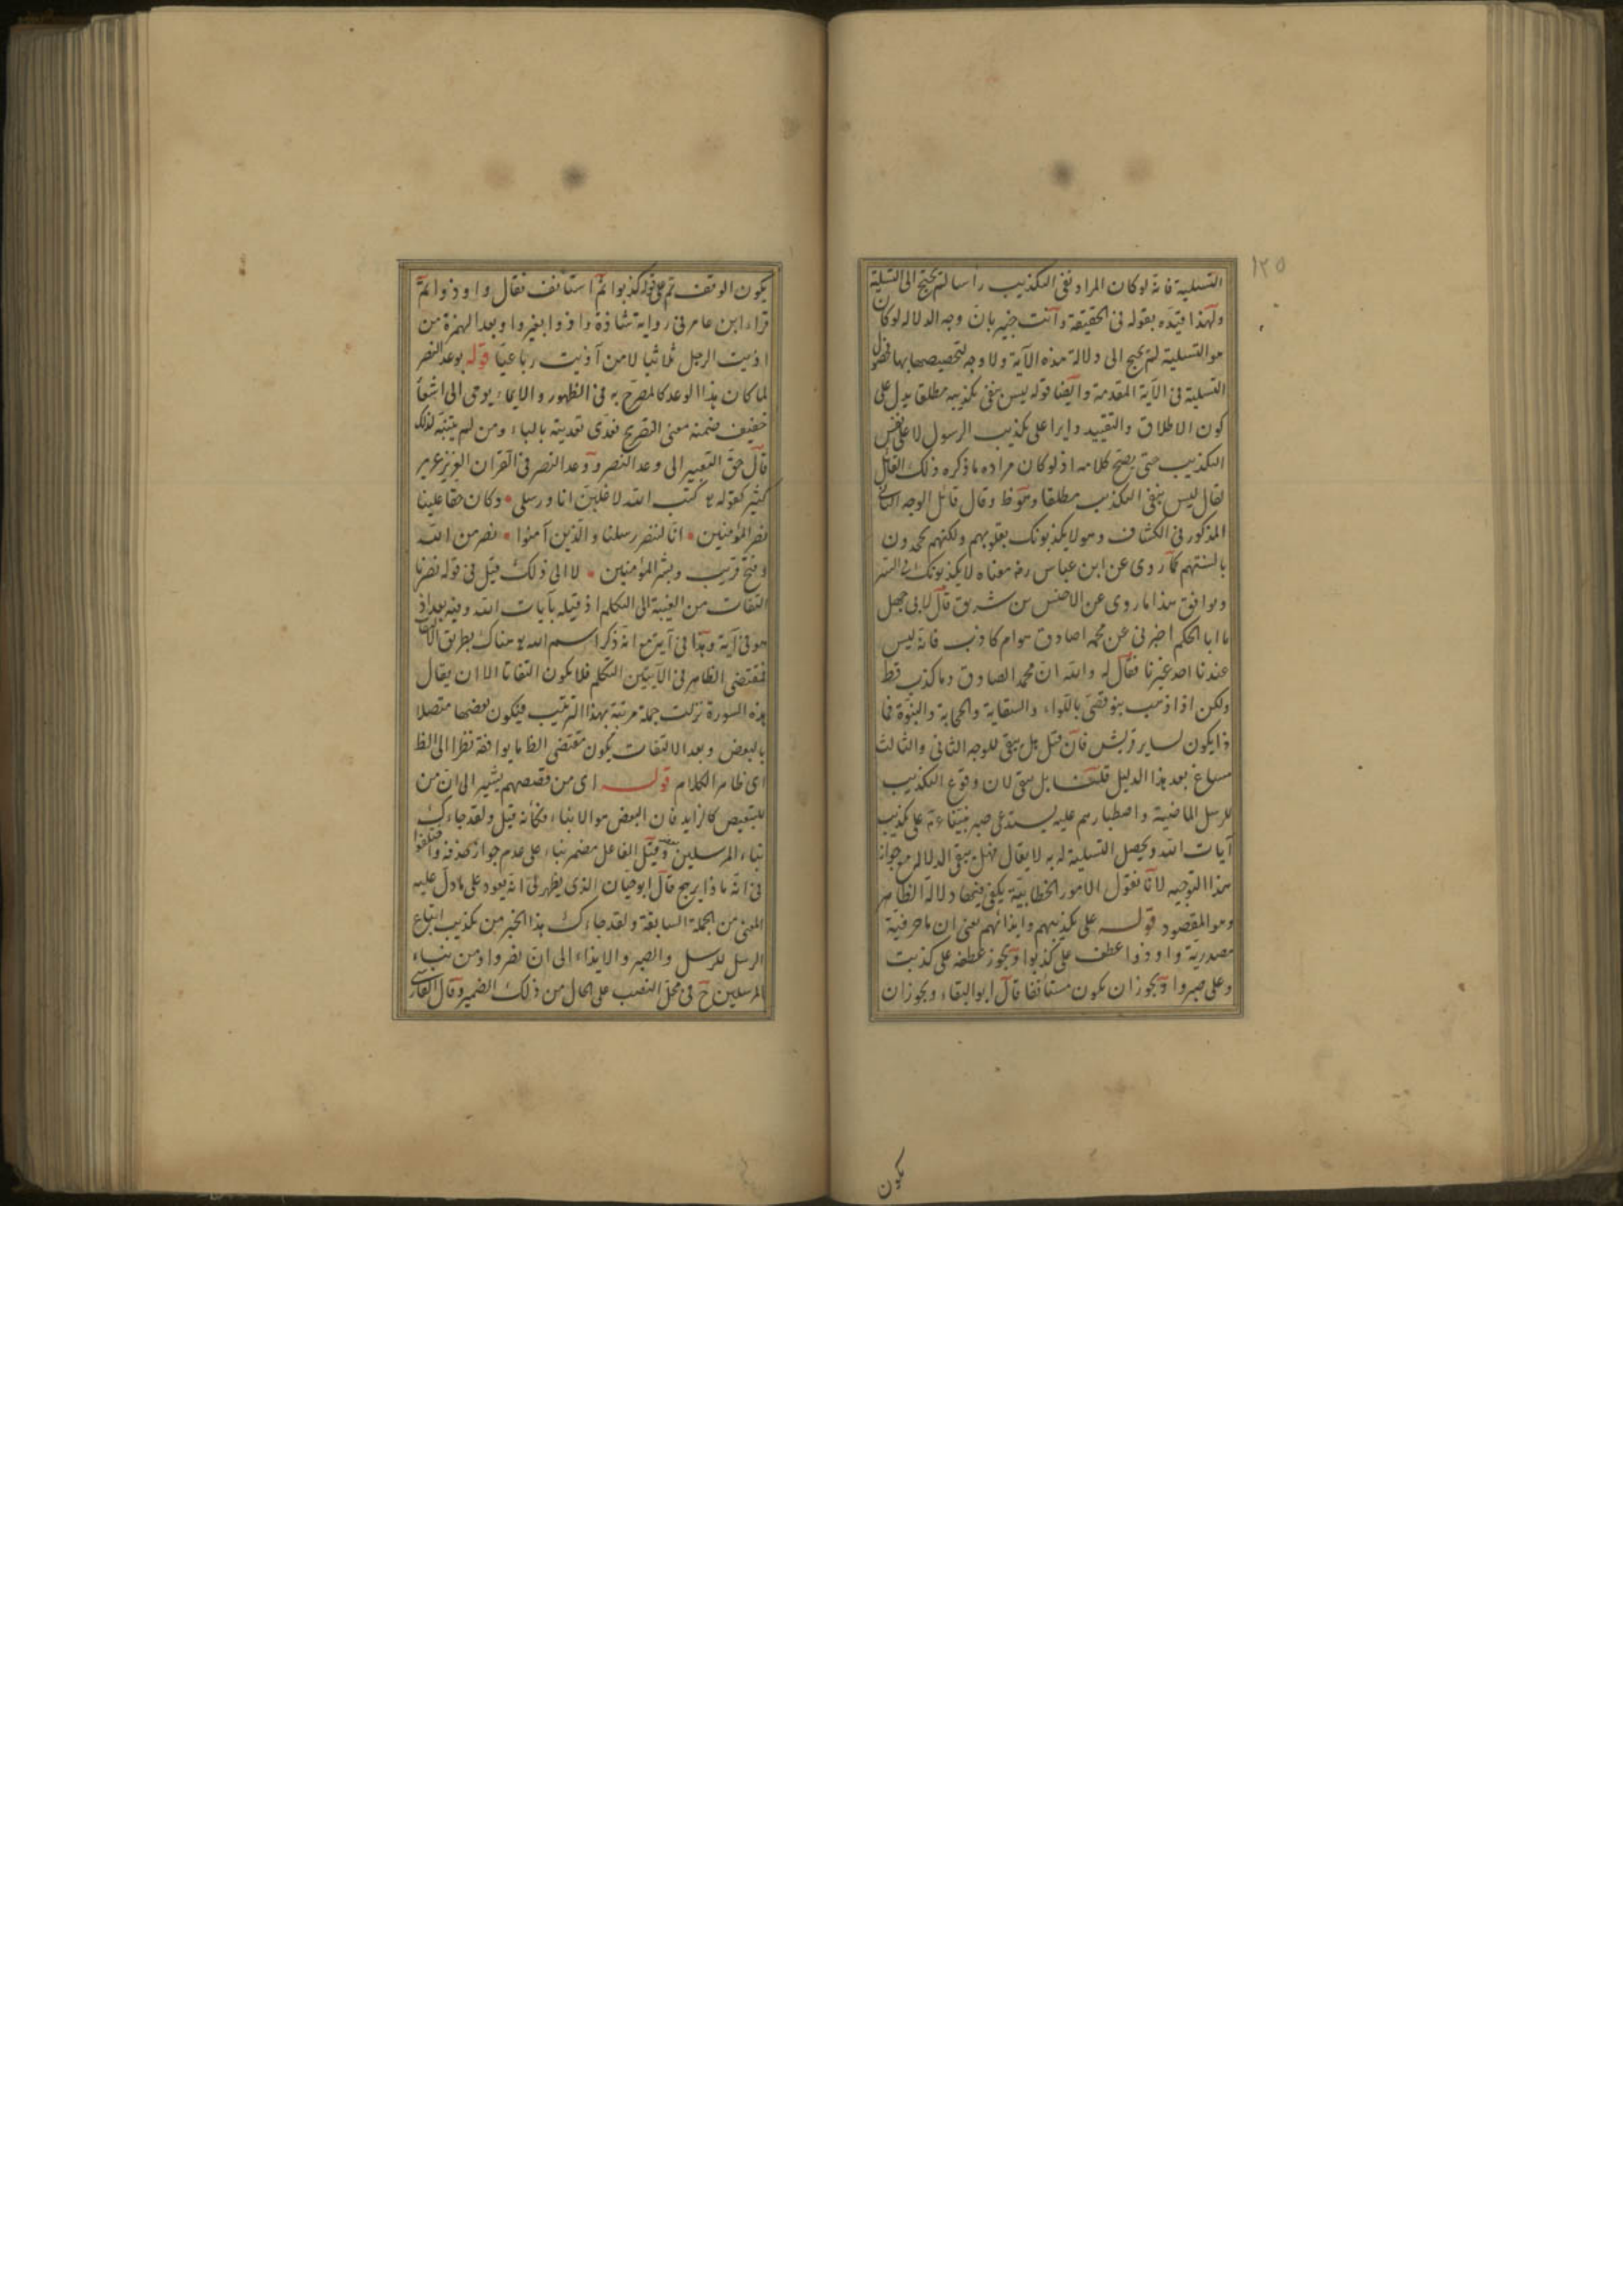 ١٢٥
التسلية فانه لو كان المراد نفى التكذيب رأسا لم يحتج الى التسلية
ولهذا قيده بقوله فى الحقيقة وانت خبير بان وجه الدلاله لو كان
هو التسلية لم يحتج الى دلالة هذه الآية ولا وجه لتخصيصها بها
التسلية فى الآية المقدمة وايضا قوله ليس بنفى تكذيبه مطلقا يدل على
كون الاطلاق والتقييد دايرا على تكذيب الرسول لا على نفس
التكذيب حتى يصح كلامه اذ لو كان مراده ما ذكره ذلك القائل
لقال ليس بنفى التكذيب مطلقا وقال قائل الوجه الثانى
المذكور فى الكشاف وهو لا يكذبونك بقلوبهم ولكنهم يجحدون
بالسنتهم كما روى عن ابن عباس رضه معناه لا يكذبونك فى السر
ويوافق هذا ما روى عن الاخنس بن شريق قال لابى جهل
يا ابا الحكم اخبرنى عن محمد اصادق هو ام كاذب فانه ليس
عندنا احد غيرنا فقال له والله ان محمدا لصادق وما كذب قط
ولكن اذا ذهب بنو قصى باللواء والسقاية والحجابة والنبوة فما
ذا يكون لساير قريش فان قيل هل يبقى للوجه الثانى والثالث
مساغ بعد هذا الدليل قلنا بل بقى لان وقوع التكذيب
للرسل الماضية واصطبارهم عليه يستدعى صبر نبينا على تكذيب
آيات الله ويحصل التسلية له به لا يقال فهل يبقى الدلالة مع جواز
هذا التوجيه لانا نقول الامور الخطابية يكفى فيها دلالة الظاهر
وهو المقصود قوله على تكذيبهم وايذائهم يعنى ان ما حرفية
مصدرية واوذوا عطف على كذبوا ويجوز عطفه على كذبت
وعلى صبروا ويجوز ان يكون مستأنفا قال ابو البقاء ويجوز ان
يكون
يكون الوقف تم على قوله كذبوا ثم استأنف فقال واوذوا ثم
قراء ابن عامر فى رواية شاذة واذوا بغير واو بعد الهمزة من
اذيت الرجل ثلاثيا لا من آذيت رباعيا قوله بوعد النصر
لما كان هذا الوعد كالمصرح به فى الظهور والايماء يومى الى
خفيف ضمنه معنى التصريح فعدى تعديته بالباء ومن لم يتنبه لذلك
قال حق التعبير الى وعد النصر ووعد النصر فى القران العزيز
كثير كقوله تع كتب الله لاغلبن انا ورسلى وكان حقا علينا
نصر المؤمنين انا لننصر رسلنا والذين آمنوا نصر من الله
وفتح قريب وبشر المؤمنين لا الى ذلك قيل فى قوله نصرنا
التفات من الغيبة الى التكلم اذ قبله بآيات الله وفيه بعد اذ
هو فى آية وهذا فى آية مع انه ذكر اسم الله تع هناك بطريق الالتفات
فمقتضى الظاهر فى الآيتين التكلم فلا يكون التفاتا الا ان يقال
هذه السورة نزلت جملة مرتبة بهذا الترتيب فيكون بعضها متصلا
بالبعض وبعد الالتفات يكون مقتضى الظ ما يوافقه نظرا الى الظ
اى ظاهر الكلام قوله اى من قصصهم يشير الى ان من
للتبعيض كالزايد فان البعض هو الانباء فكأنه قيل ولقد جاءك
نباء المرسلين وقيل الفاعل مضمر بناء على عدم جواز حذفه واختلفوا
فى انه ماذا يرجح قال ابو حيان الذى يظهر لى انه يعود على ما دل عليه
المعنى من الجملة السابقة ولقد جاءك هذا الخبر من تكذيب اتباع
الرسل للرسل والصبر والايذاء الى ان نصروا ومن نباء
المرسلين ح فى محل النصب على الحال من ذلك الضمير وقال الفارسى